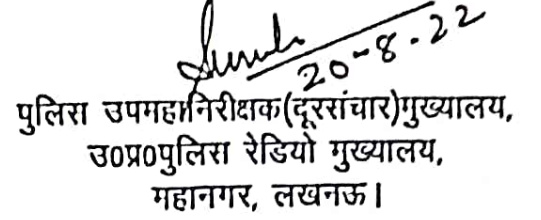 20-8-22
पुलिस उपमहानिरीक्षक(दूरसंचार)मुख्यालय,
उ0प्र0पुलिस रेडियो मुख्यालय,
महानगर, लखनऊ।